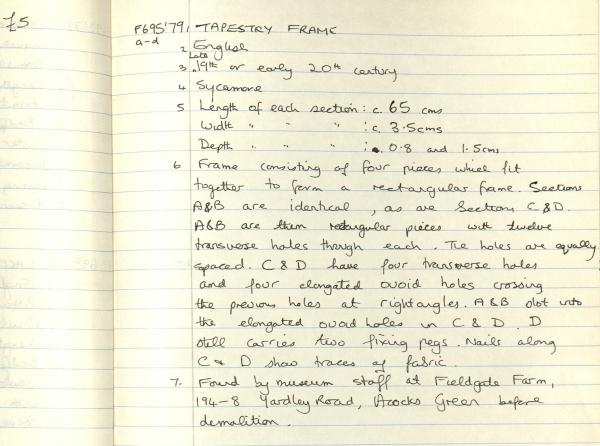 75
F695'79, 1 TAPESTRY FRAME
a-d
2 English
3 Late 19th or early 20th century
4 Sycamore
5 Length of each section : c. 65 cms
Width " " " : c. 3.5cms
Depth " " " : 0.8 and 1.5cms
6 Frame consisting of four pieces which fit
together to form a rectangular frame. Sections
A&B are identical, as are Sections C & D.
A&B are rectangular pieces with twelve
transverse holes through each. The holes are equally
spaced. C & D have four transverse holes
and four elongated ovoid holes crossing
the previous holes at right angles. A&B slot into
the elongated ovoid holes in C & D. D
still carries two fixing pegs. Nails along
C & D show traces of fabric.
7. Found by museum staff at Fieldgate Farm,
194-8 Yardley Road, Acocks Green before
demolition.